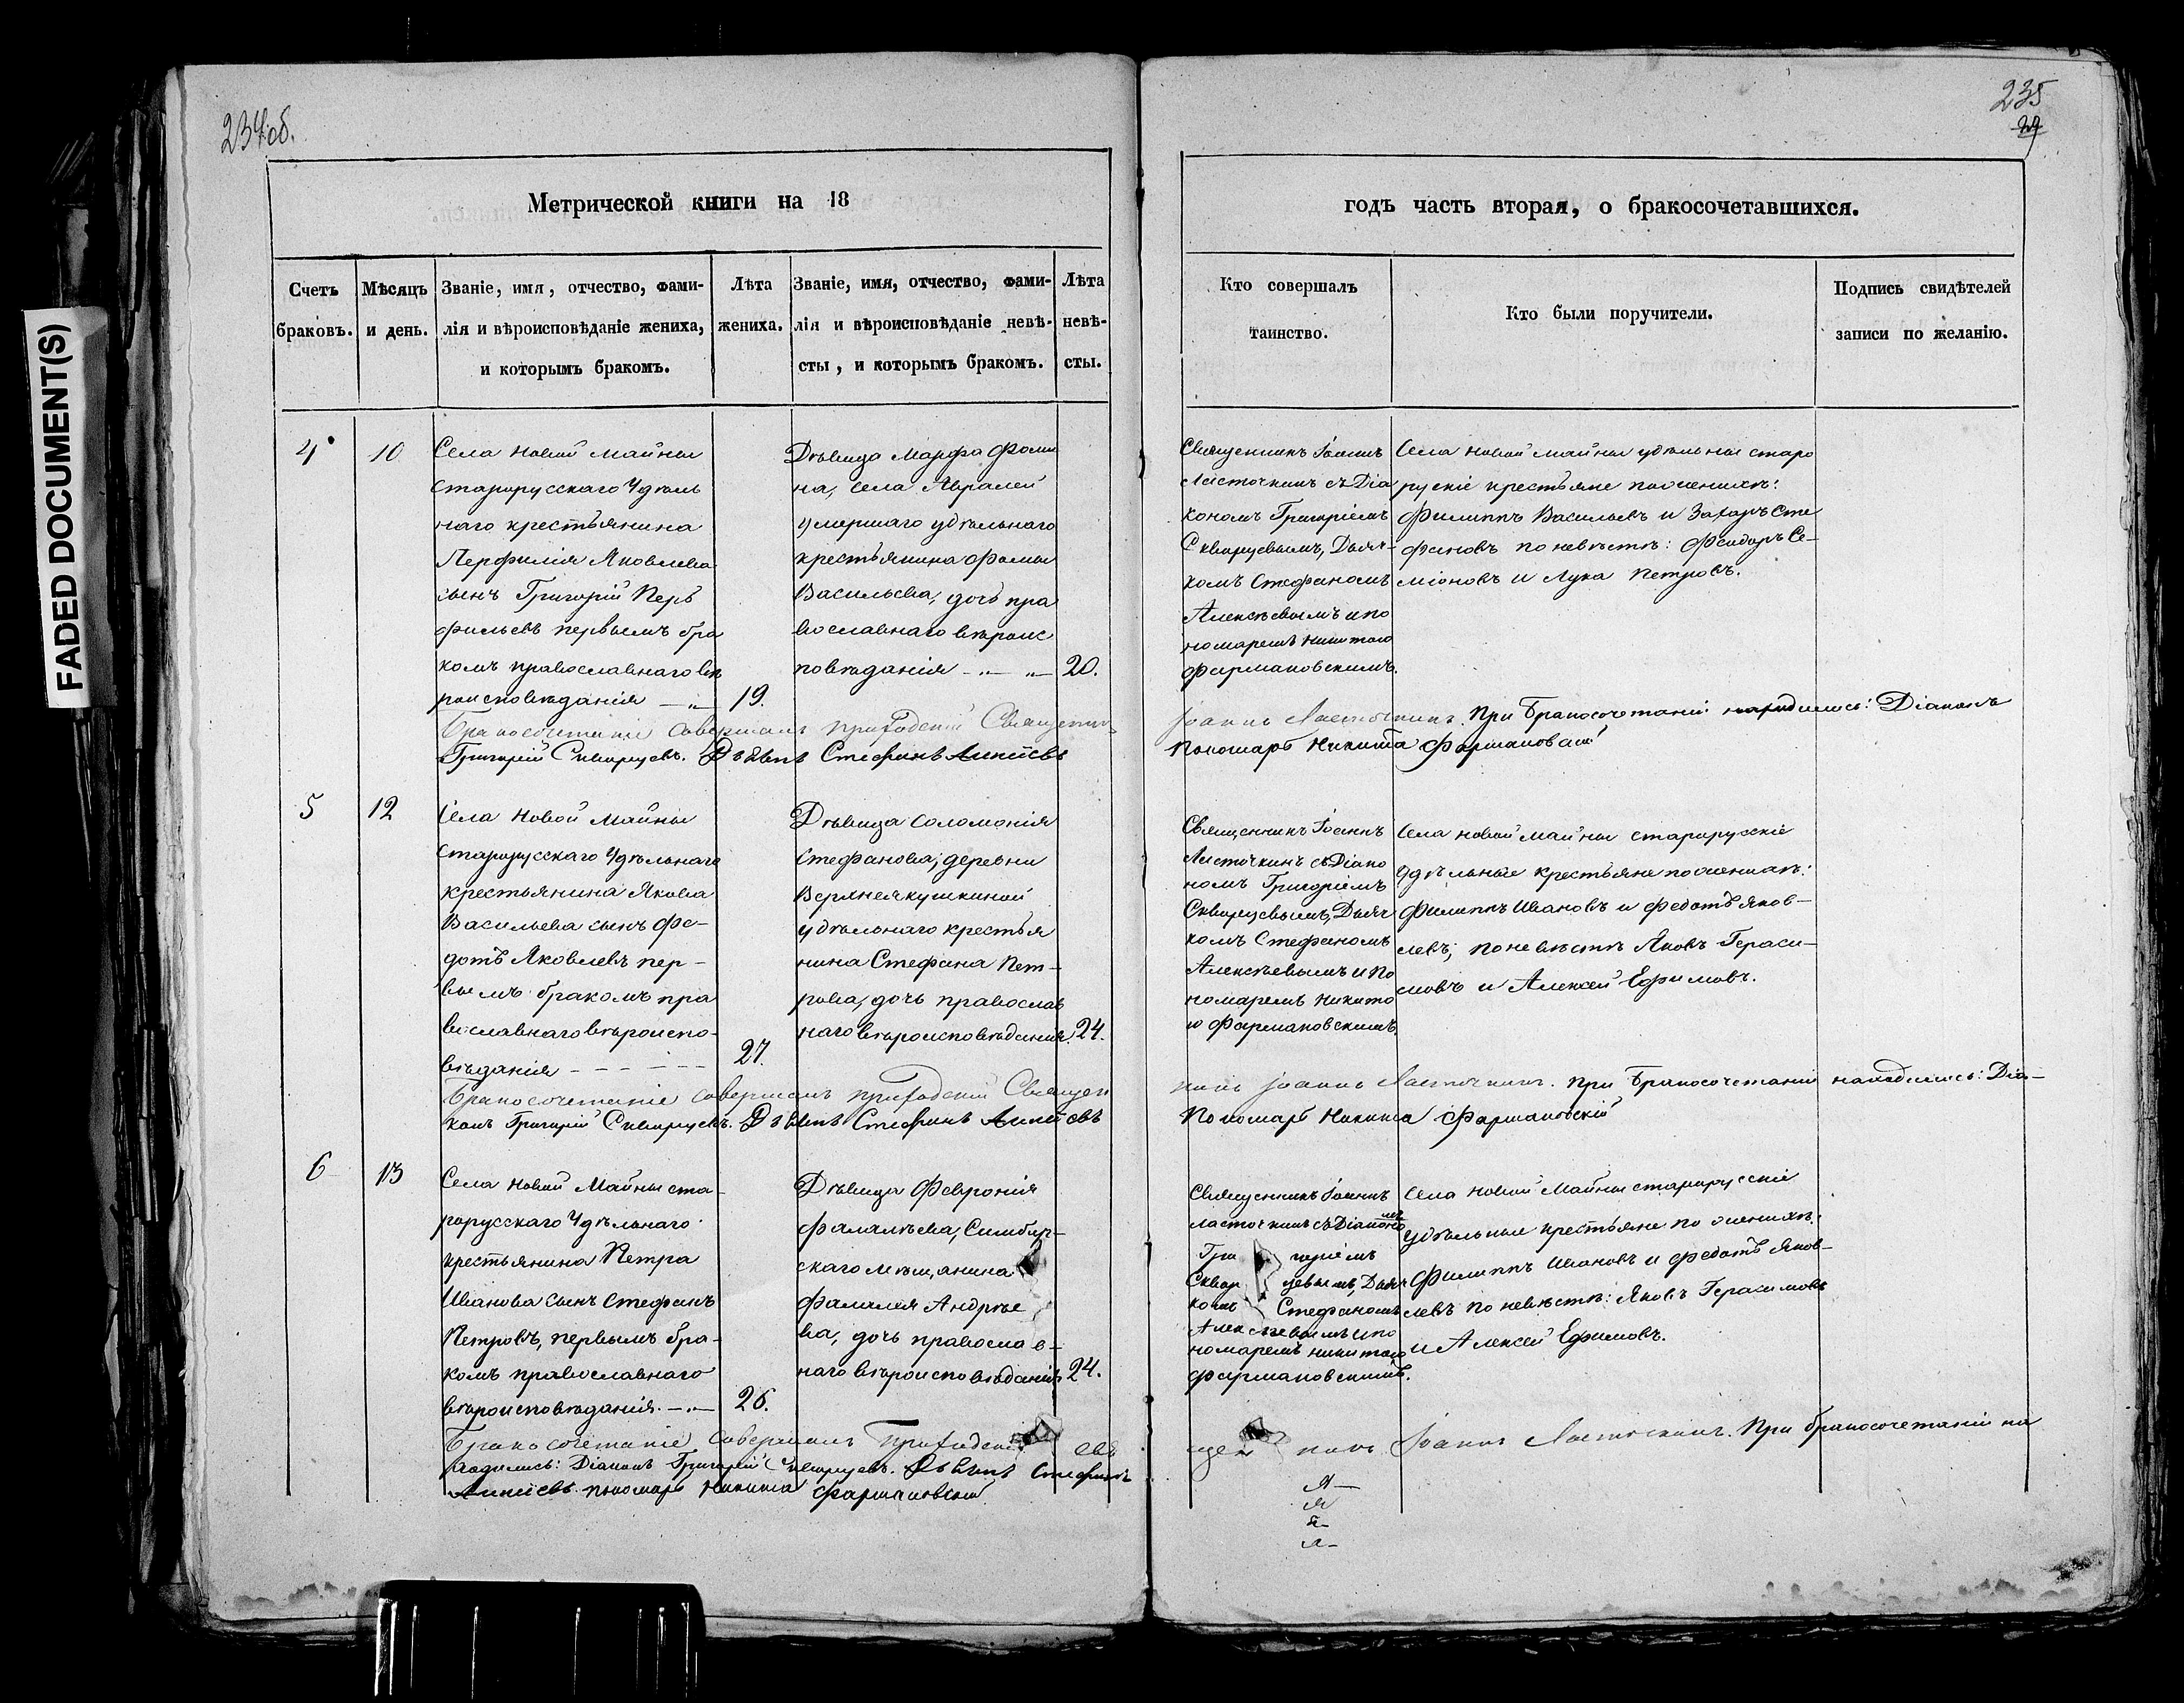 234об.
235
29
FADED DOCUMENT(S)
Метрической книги на 18
годъ часть вторая, о бракосочетавшихся.
Счетъ браковъ.
Мѣсяцъ и день.
Званіе, имя, отчество, фами-
лія и вѣроисповѣданіе жениха,
и которымъ бракомъ.
Лѣта жениха.
Званіе, имя, отчество, фами-
лія и вѣроисповѣданіе невѣ-
сты, и которымъ бракомъ.
Лѣта невѣ-
сты.
Кто совершалъ
таинство.
Кто были поручители.
Подпись свидѣтелей
записи по желанію.
4
10
Села Новой Майны
старорусскаго Удѣль
наго крестьянина
Перфилія Яковлева
сынъ Григорій Пер
фильевъ первымъ бра
комъ православнаго вѣ
роисповѣданія
19.
Дѣвица Марфа Фоми
на, села
умершаго удѣльнаго
крестьянина Фомы
Васильева, дочь пра
вославнаго вѣроис
повѣданія
20.
Священникъ Іоаннъ
Ласточкинъ съ Діа
кономъ Григоріемъ
Скворцевымъ, Дьяч-
комъ Стефаномъ
Алексѣевымъ и по
номаремъ Никитою
Фармаковскимъ.
Села Новой Майны удѣльные старо
рускіе крестьяне по женихѣ:
Филиппъ Васильевъ и Захаръ Сте
фановъ по невѣстѣ: Феодоръ Се-
міоновъ и Лука Петровъ.
Бракосочетаніе совершалъ приходскій Священникъ
Іоаннъ Ласточкинъ. При бракосочетаніи находились: Діаконъ
Григорій Скворцевъ. Дьячекъ Стефанъ
Пономарь Никита Фармаковскій
5
12
Села Новой Майны
старорусскаго Удѣльнаго
крестьянина Якова
Васильева сынъ Фе-
дотъ Яковлевъ пер-
вымъ бракомъ пра
вославнаго вѣроиспо-
вѣданія - - - - - -
27.
Дѣвица Соломонія
Стефанова, деревни
удѣльнаго крестья
нина Стефана Пет-
рова, дочь православ
наго вѣроисповѣданія.
24.
Священникъ Іоаннъ
Ласточкинъ съ Діако
номъ Григоріемъ
Скворцевымъ, Дьяч
комъ Стефаномъ
Алексѣевымъ и по
номаремъ Никито
ю Фармаковскимъ.
Села Новой Майны старорусскіе
удѣльные крестьяне по женихѣ:
Филиппъ Ивановъ и Федотъ Яков-
левъ; по невѣстѣ Яковъ Гераси-
мовъ и Алексей Ефимовъ.
Бракосочетаніе совершалъ приходскій Священ
никъ Іоаннъ Ласточкинъ. При бракосочетаніи находились: Діа-
конъ Григорій Скворцевъ. Дьячекъ Стефанъ
Пономарь Никита Фармаковскій
6
13
Села Новой Майны ста-
рорусскаго Удѣльнаго
крестьянина Петра
Иванова сынъ Стефанъ
Петровъ, первымъ бра-
комъ православнаго
вѣроисповѣданія.
26.
Дѣвица Феврония
Фалалѣева, Симбир-
скаго мѣщанина
Фалалея Андрѣе
ва, дочь православ-
наго вѣроисповѣданія
24.
Священникъ Іоаннъ
Ласточкинъ съ Діакономъ
Григоріемъ
Скворцевымъ, Дьяч
комъ Стефаномъ
Алексѣевымъ и по
номаремъ Никитою
Фармаковскимъ.
Села Новой Майны старорусскіе
удѣльные крестьяне по женихѣ:
Филиппъ Ивановъ и Федотъ Яков-
левъ по невѣстѣ: Яковъ Герасимовъ
и Алексей Ефимовъ.
Бракосочетаніе совершалъ Приходскій Свя
щенникъ Іоаннъ Ласточкинъ. При бракосочетаніи на
ходились: Діаконъ Григорій Скворцевъ. Дьячекъ Стефанъ
пономарь Никита Фармаковскій